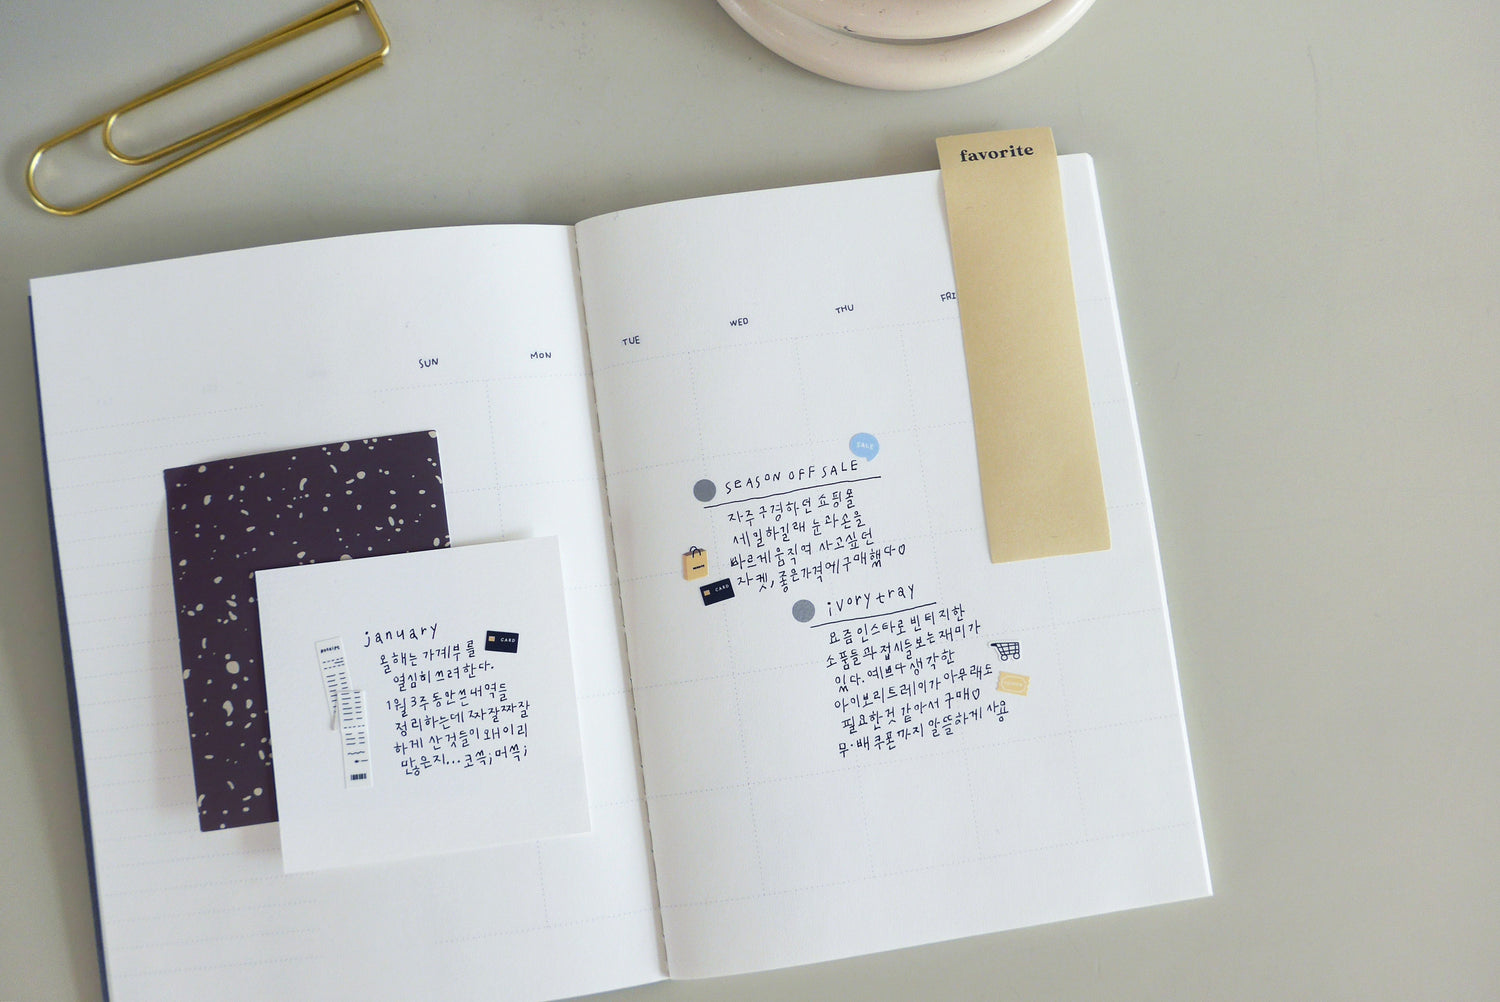 favorite
SUN
MON
TUE
WED
THU
FRI
january
CARD
올해는 가계부를
열심히 쓰려 한다.
1월 3주 동안 쓴 내역들
정리하는데 짜잘짜잘
하게 산 것들이 왜이리
많은지... 코쓱; 머쓱;
SALE
SEASON OFF SALE
자주 구경하던 쇼핑몰
세일하길래 눈과 손을
빠르게 움직여 사고싶던
자켓, 좋은가격에 구매했다♡
CARD
ivory tray
요즘 인스타로 빈티지한
소품들과 접시들 보는 재미가
있다. 예쁘다 생각한
아이보리 트레이가 아무래도
필요한 것 같아서 구매♡
무·배 쿠폰까지 알뜰하게 사용